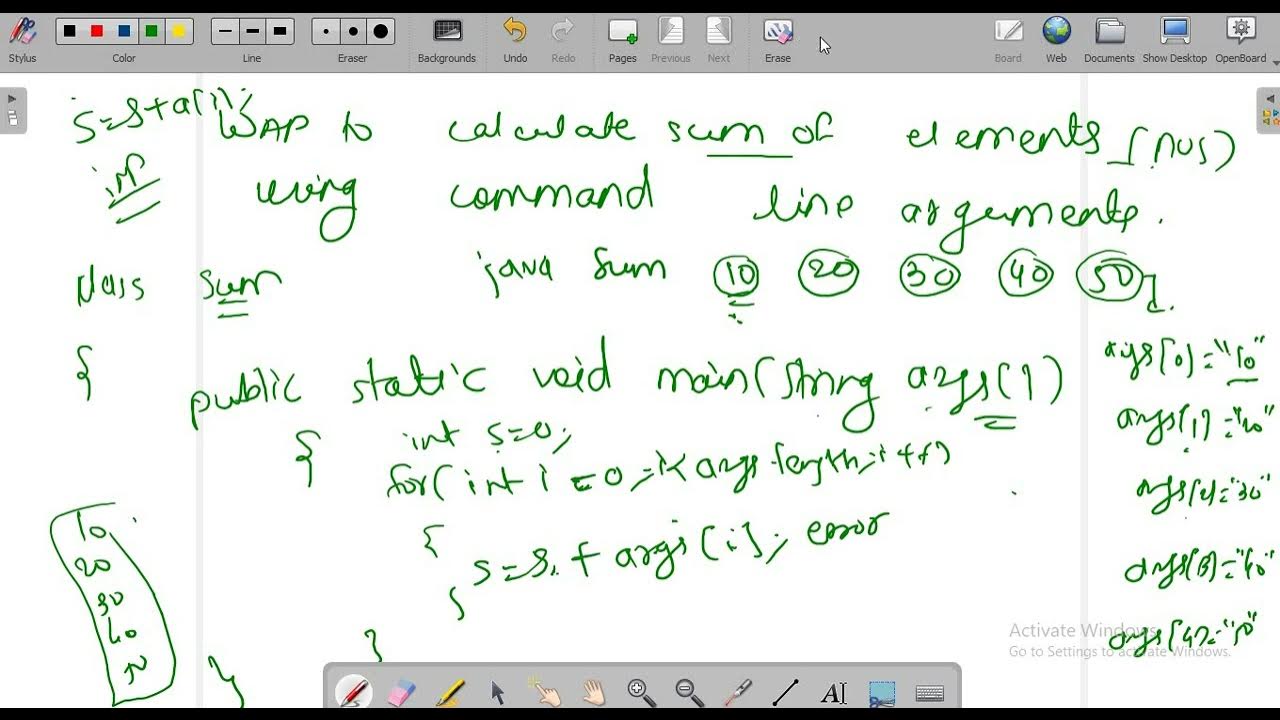 Stylus
Color
Line
Eraser
Backgrounds
Undo
Redo
Pages
Previous
Next
Erase
Board
Web
Documents
Show Desktop
OpenBoard
S=S+a[i];
WAP to calculate sum of elements (nos)
imp
using command line arguments.
class sum
java Sum 10 20 30 40 50
{
public static void main(String args[])
{
int s=0;
for(int i=0;i<args.length;i++)
{
s=s+args[i]; error
}
}
}
10
20
30
40
50
args[0]="10"
args[1]="20"
args[2]="30"
args[3]="40"
args[4]="50"
Activate Windows
Go to Settings to activate Windows.